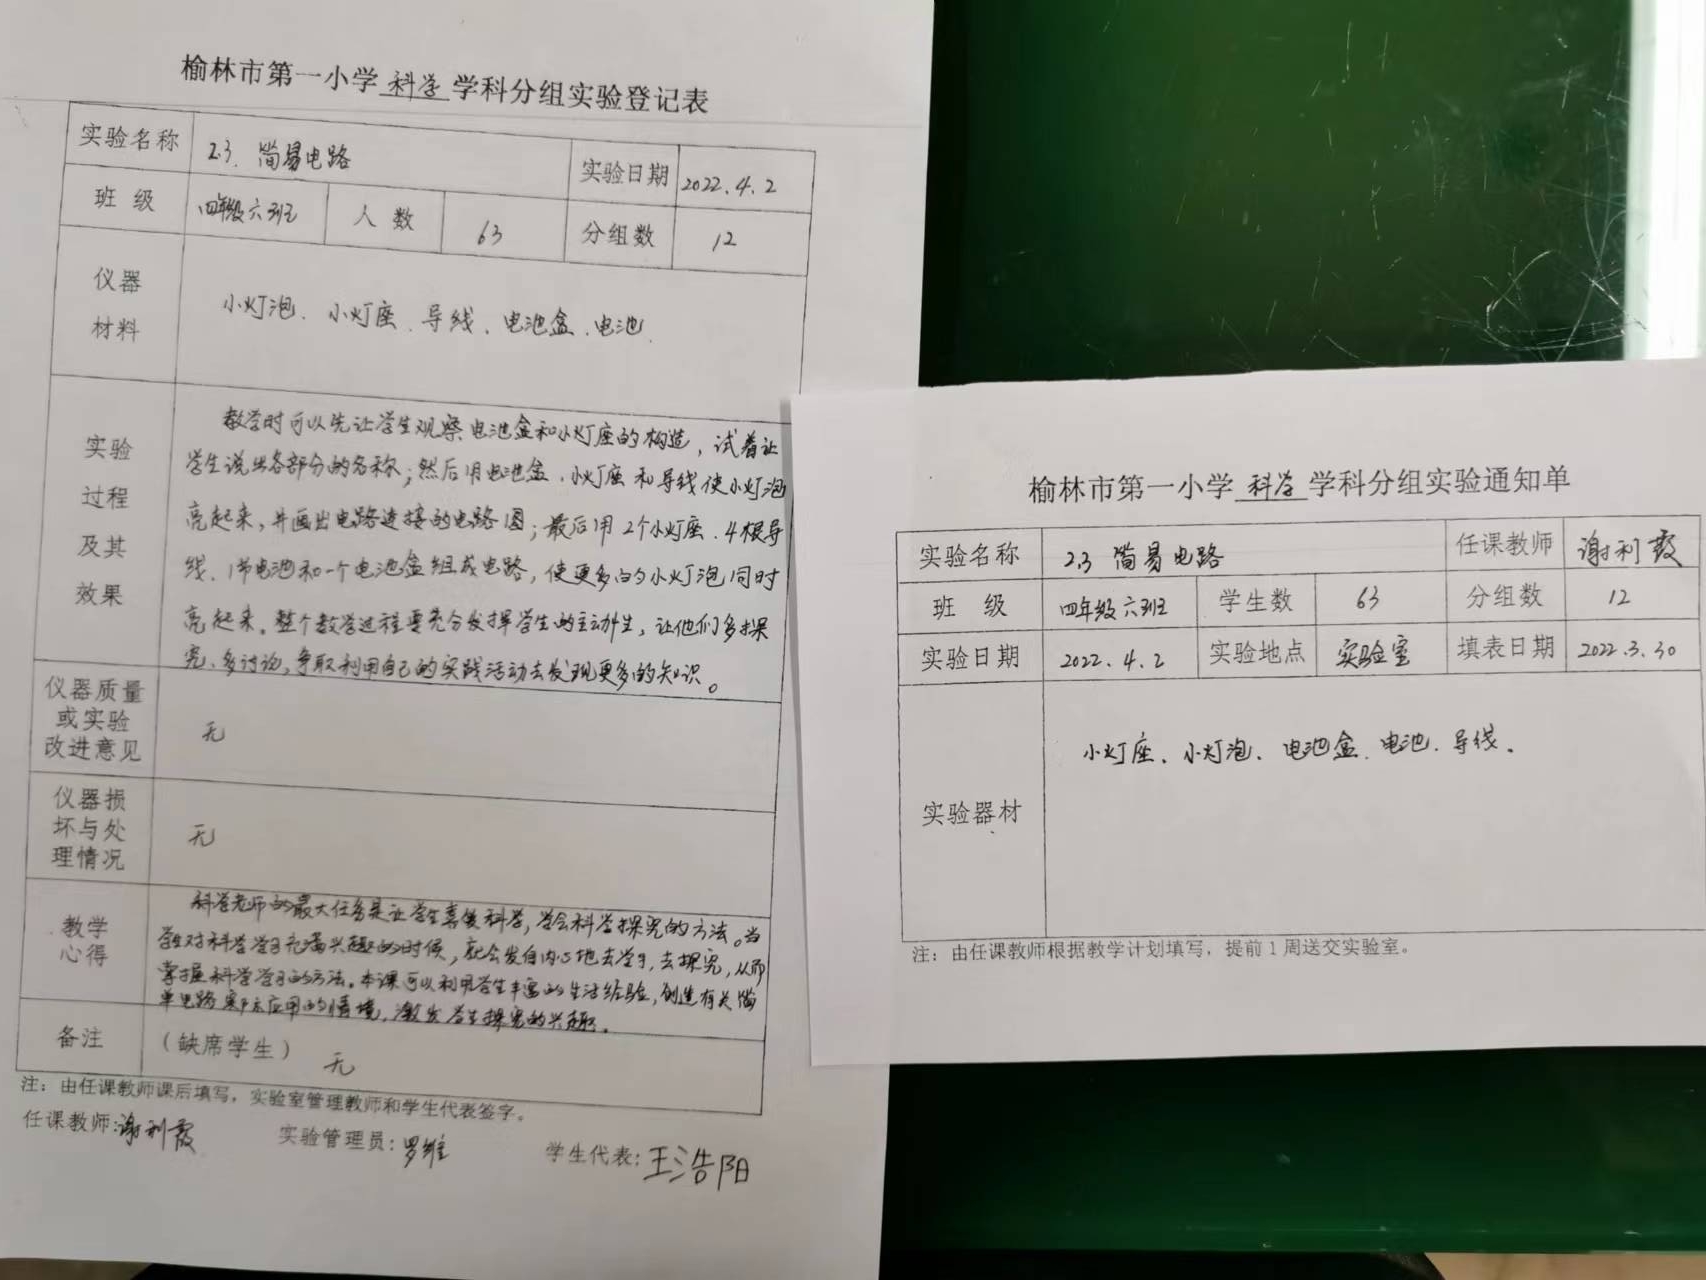 榆林市第一小学科学学科分组实验登记表
实验名称 2.3. 简易电路 实验日期 2022.4.2
班 级 四年级六班 人 数 63 分组数 12
仪器
材料
小灯泡、小灯座、导线、电池盒、电池
实验
过程
及其
效果
教学时可以先让学生观察电池盒和小灯座的构造，试着让
学生说出各部分的名称；然后用电池盒、小灯座和导线使小灯泡
亮起来，并画出电路连接的电路图；最后用2个小灯座、4根导
线、1节电池和一个电池盒组成电路，使更多的小灯泡同时
亮起来。整个教学过程要充分发挥学生的主动性，让他们多探
究、多讨论，争取利用自己的实践活动去发现更多的知识。
仪器质量
或实验
改进意见
无
仪器损
坏与处
理情况
无
教学
心得
科学老师的最大任务是让学生喜爱科学，学会科学探究的方法。当
学生对科学学习充满兴趣的时候，就会发自内心地去学习，去探究，从而
掌握科学学习的方法。本课可以利用学生丰富的生活经验，创造有关简
单电路实际应用的情境，激发学生探究的兴趣。
备注 （缺席学生） 无
注：由任课教师课后填写，实验室管理教师和学生代表签字。
任课教师：谢利霞 实验管理员：罗维 学生代表：王浩阳
榆林市第一小学科学学科分组实验通知单
实验名称 2.3 简易电路 任课教师 谢利霞
班 级 四年级六班 学生数 63 分组数 12
实验日期 2022.4.2 实验地点 实验室 填表日期 2022.3.30
实验器材
小灯座、小灯泡、电池盒、电池、导线、
注：由任课教师根据教学计划填写，提前1周送交实验室。